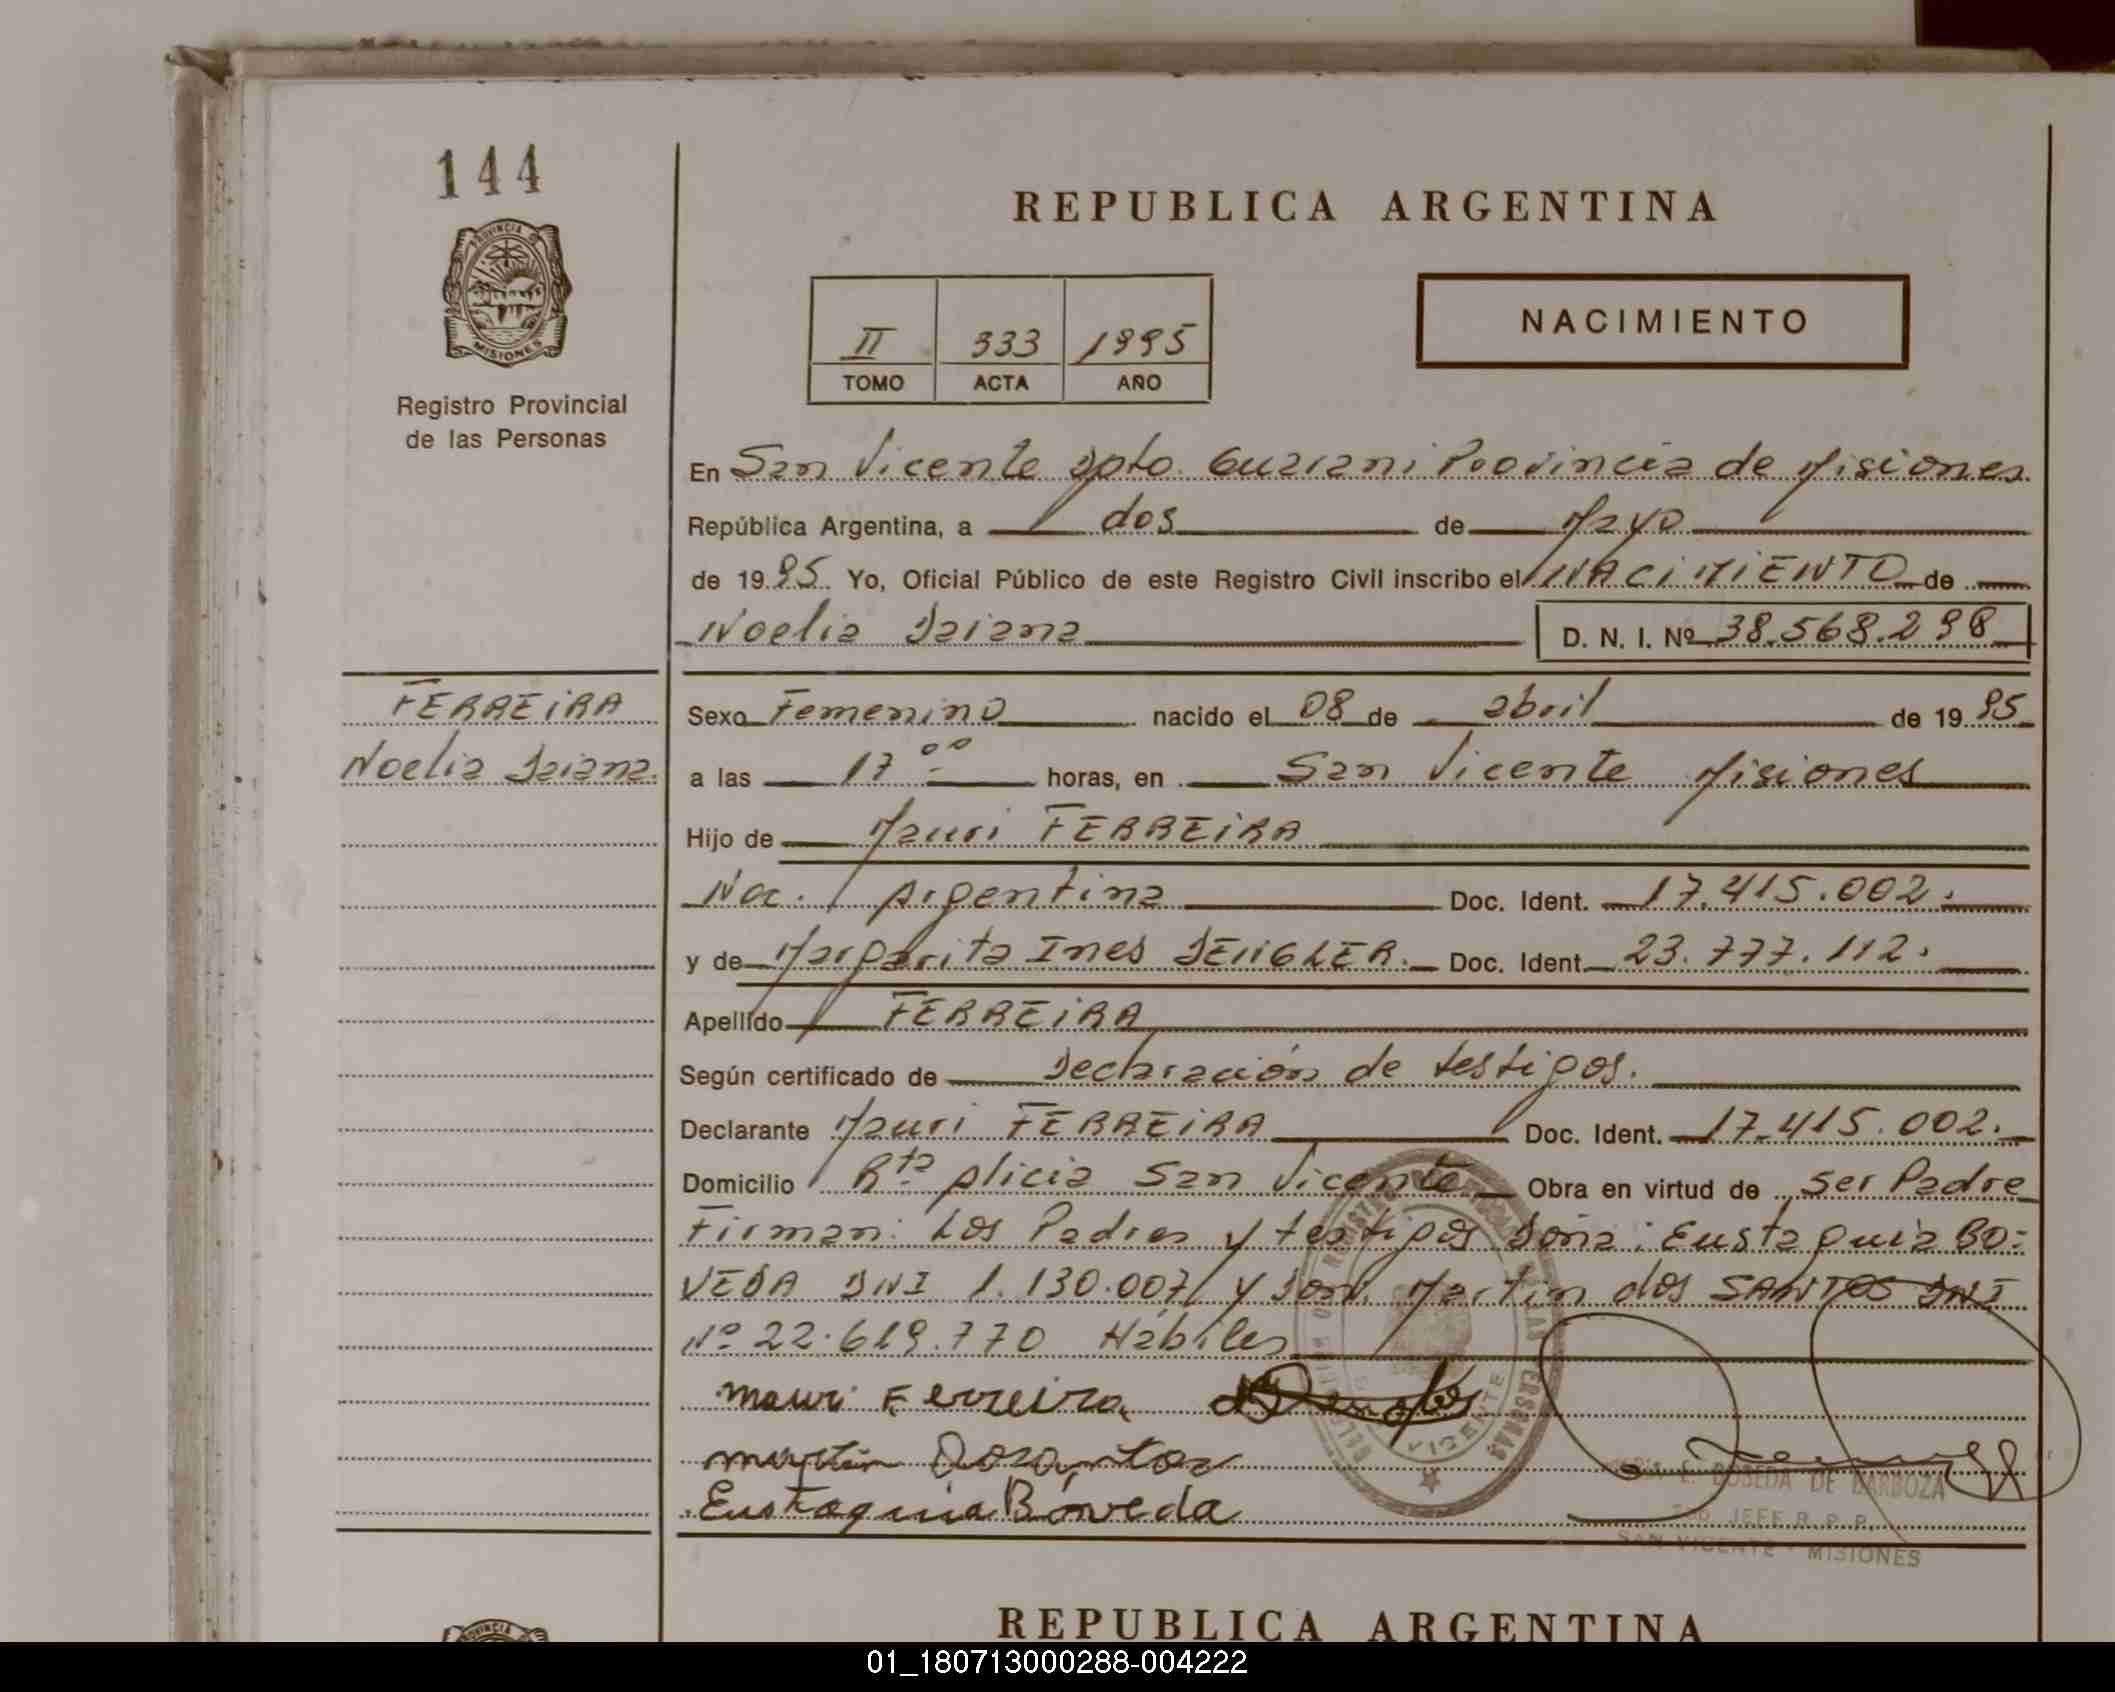 144
REPUBLICA ARGENTINA
PROVINCIA DE
MISIONES
Registro Provincial
de las Personas
II 333 1995
TOMO ACTA AÑO
NACIMIENTO
En San Vicente Dpto. Guarani Provincia de Misiones
República Argentina, a dos de Mayo
de 1995 Yo, Oficial Público de este Registro Civil inscribo el NACIMIENTO de
Noelia Daiana D. N. I. Nº 38.568.298
FERREIRA
Noelia Daiana.
Sexo Femenino nacido el 08 de abril de 1995
a las 17 00 horas, en San Vicente Misiones
Hijo de Mauri FERREIRA
Nac. Argentina Doc. Ident. 17.415.002.
y de Margarita Ines DENGLER. Doc. Ident. 23.777.112.
Apellido FERREIRA
Según certificado de Declaración de testigos.
Declarante Mauri FERREIRA Doc. Ident. 17.415.002.
Domicilio Rta Alicia San Vicente Obra en virtud de ser Padre
Firman: Los Padres y testigos Doña: Eustaquia BO-
VEDA DNI 1.130.007 y Don. Martin dos SANTOS DNI
Nº 22.619.770 Habiles
Mauri Ferreira
Martin Dosantos
Eustaquia Bóveda
E. BOBEDA DE BARBOZA
JEFE R. P. P.
SAN VICENTE - MISIONES
REPUBLICA ARGENTINA
01_180713000288-004222